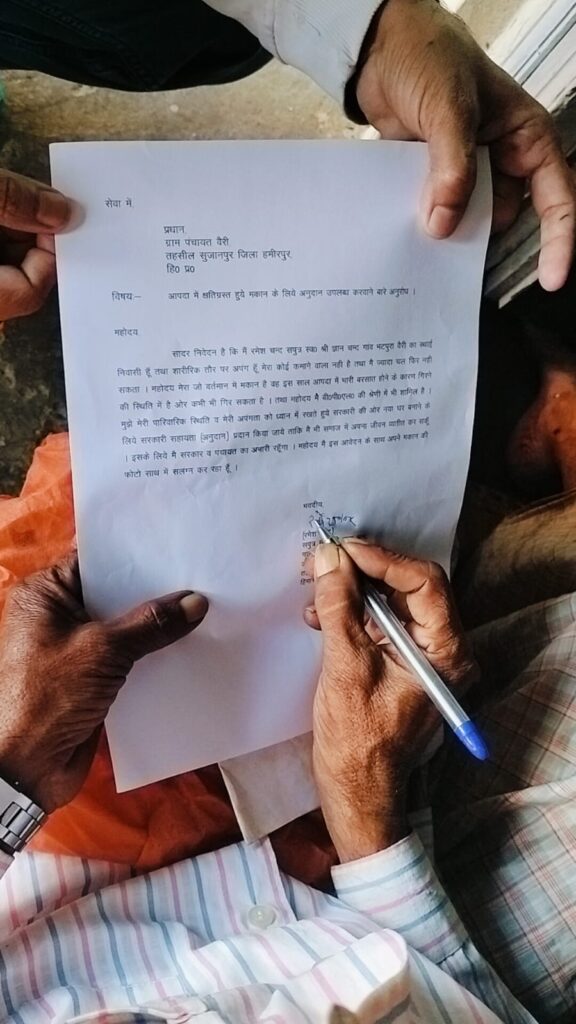 सेवा में,
प्रधान,
ग्राम पंचायत वैरी
तहसील सुजानपुर जिला हमीरपुर,
हि0 प्र0
विषय:– आपदा में क्षतिग्रस्त हुये मकान के लिये अनुदान उपलब्ध करवाने बारे अनुरोध ।
महोदय,
सादर निवेदन है कि मैं रमेश चन्द सपुत्र स्व0 श्री ज्ञान चन्द गांव भटपुरा वैरी का स्थाई
निवासी हूँ तथा शारीरिक तौर पर अपंग हूँ मेरा कोई कमाने वाला नही है तथा मै ज्यादा चल फिर नहीं
सकता । महोदय मेरा जो वर्तमान में मकान है वह इस साल आपदा में भारी बरसात होने के कारण गिरने
की स्थिति में है ओर कभी भी गिर सकता है । तथा महोदय मै बी0पी0एल0 की श्रेणी में भी शामिल है ।
मुझे मेरी पारिवारिक स्थिति व मेरी अपंगता को ध्यान में रखते हुये सरकारी की ओर नया घर बनाने के
लिये सरकारी सहायता (अनुदान) प्रदान किया जाये ताकि मै भी समाज में अपना जीवन व्यतीत कर सकूं
। इसके लिये मै सरकार व पंचायत का अभारी रहूँगा । महोदय मै इस आवेदन के साथ अपने मकान की
फोटो साथ में सलग्न कर रहा हूँ ।
भवदीय,
(रमेश
सपुत्र